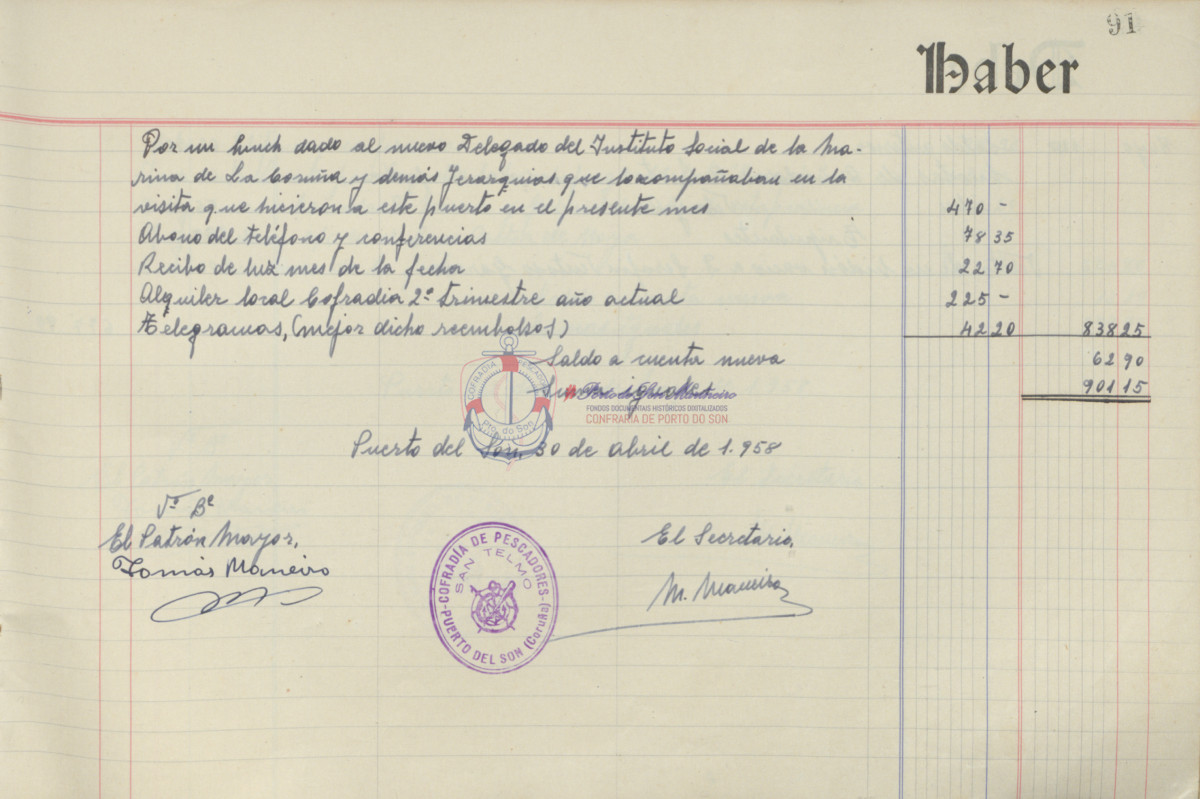 91
Haber
Por un lunch dado al nuevo Delegado del Instituto Social de la Ma-
rina de La Coruña y demás Jerarquias que lo acompañaban en la
visita que hicieron a este puerto en el presente mes 470 -
Abono del teléfono y conferencias 78 35
Recibo de luz mes de la fecha 22 70
Alquiler local Cofradia 2º trimestre año actual 225 -
Telegramas, (mejor dicho reembolsos) 42 20 838 25
Saldo a cuenta nueva 62 90
Suman iguales 901 15
COFRADIA PESCADORES
Pto. do Son
FONDOS DOCUMENTAIS HISTÓRICOS DIXITALIZADOS
CONFRARIA DE PORTO DO SON
Puerto del Son, 30 de abril de 1.958
Vº Bº
El Patrón Mayor,
Tomás Maneiro
El Secretario,
M. Maneiro
COFRADIA DE PESCADORES-(Coruña)
SAN TELMO
PUERTO DEL SON